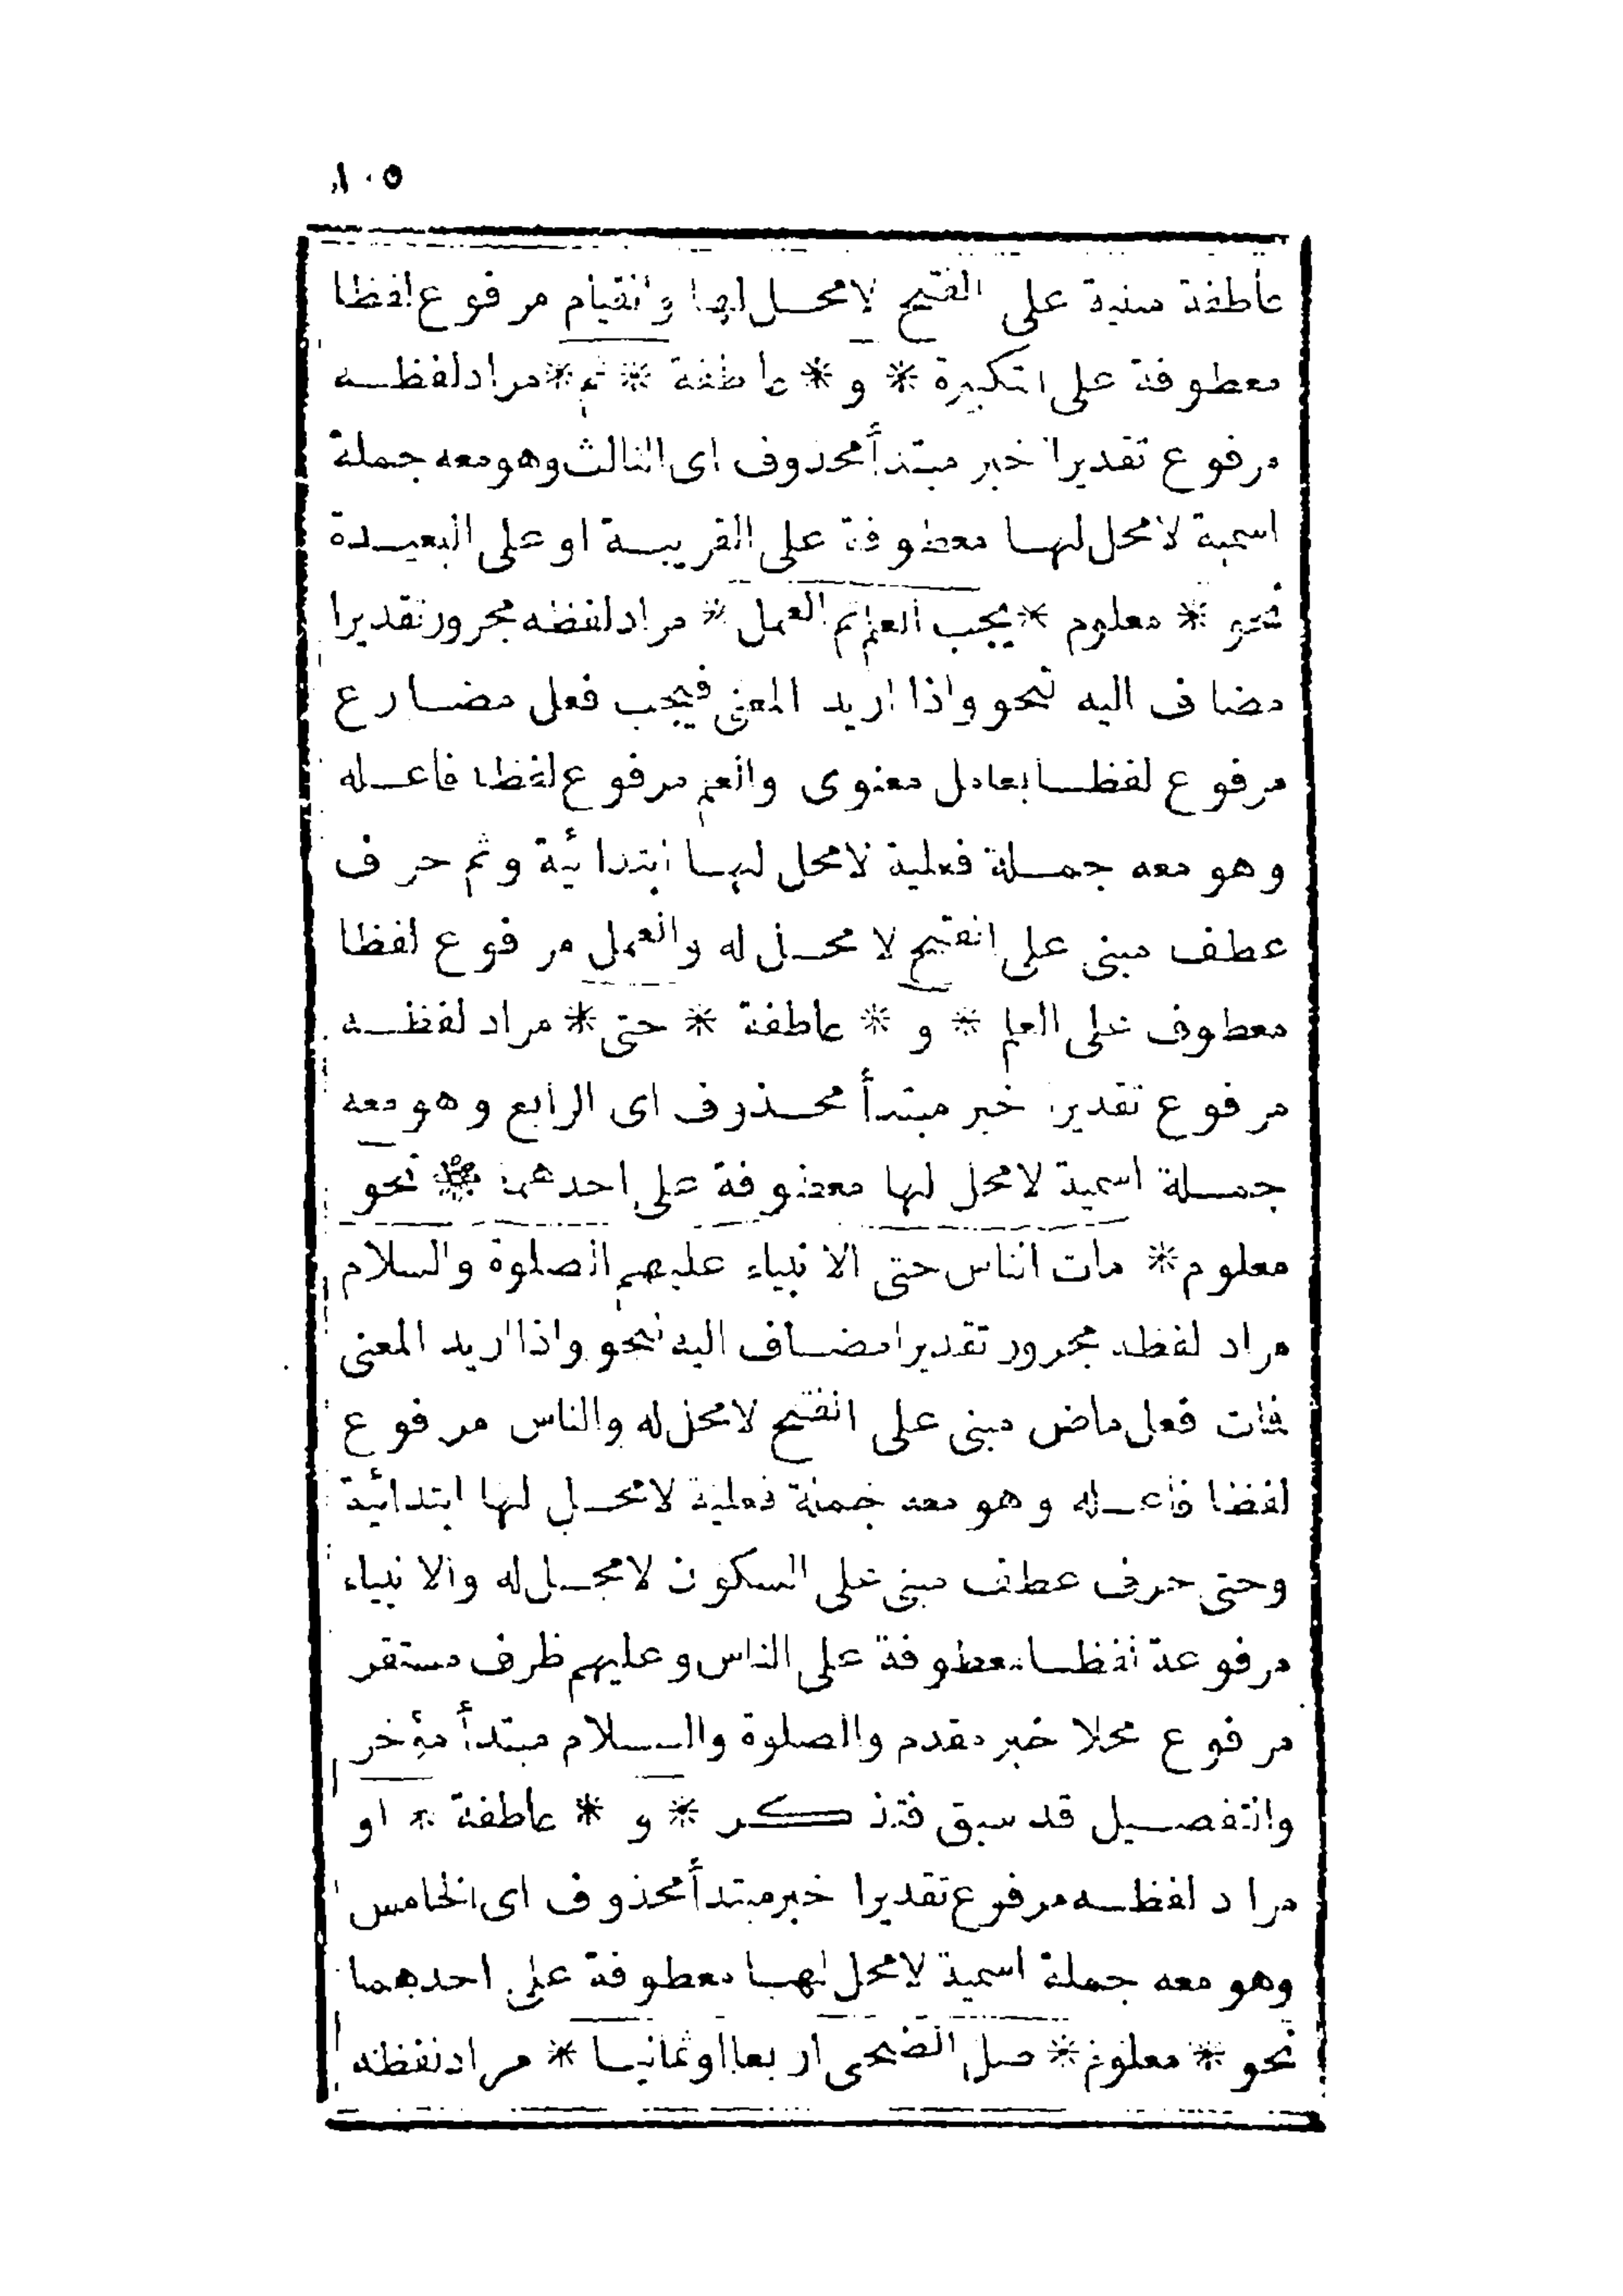 ١٠٥
عاطفة مبنية على الفتح لامحل لها والقيام مرفوع لفظا
معطوفة على التكبيرة * و * عاطفة * ثم * مراد لفظه
مرفوع تقديرا خبر مبتدأ محذوف اى الثالث وهو معه جملة
اسمية لامحل لها معطوفة على القريبة او على البعيدة
نحو * معلوم * يجب العلم ثم العمل * مراد لفظه مجرور تقديرا
مضاف اليه لنحو واذا اريد المعنى فيجب فعل مضارع
مرفوع لفظا بعامل معنوى والعلم مرفوع لفظا فاعله
وهو معه جملة فعلية لامحل لها ابتدائية وثم حرف
عطف مبنى على الفتح لا محل له والعمل مرفوع لفظا
معطوف على العلم * و * عاطفة * حتى * مراد لفظه
مرفوع تقديرا خبر مبتدأ محذوف اى الرابع وهو معه
جملة اسمية لامحل لها معطوفة على احدهما * نحو
معلوم * مات الناس حتى الانبياء عليهم الصلوة والسلام
مراد لفظه مجرور تقديرا مضاف اليه لنحو واذا اريد المعنى
فمات فعل ماض مبنى على الفتح لامحل له والناس مرفوع
لفظا فاعله وهو معه جملة فعلية لامحل لها ابتدائية
وحتى حرف عطف مبنى على السكون لامحل له والانبياء
مرفوعة لفظا معطوفة على الناس وعليهم ظرف مستقر
مرفوع محلا خبر مقدم والصلوة والسلام مبتدأ مؤخر
والتفصيل قد سبق فتذكر * و * عاطفة * او
مراد لفظه مرفوع تقديرا خبر مبتدأ محذوف اى الخامس
وهو معه جملة اسمية لامحل لها معطوفة على احدهما
نحو * معلوم * صل الضحى اربعا او ثمانيا * مراد لفظه